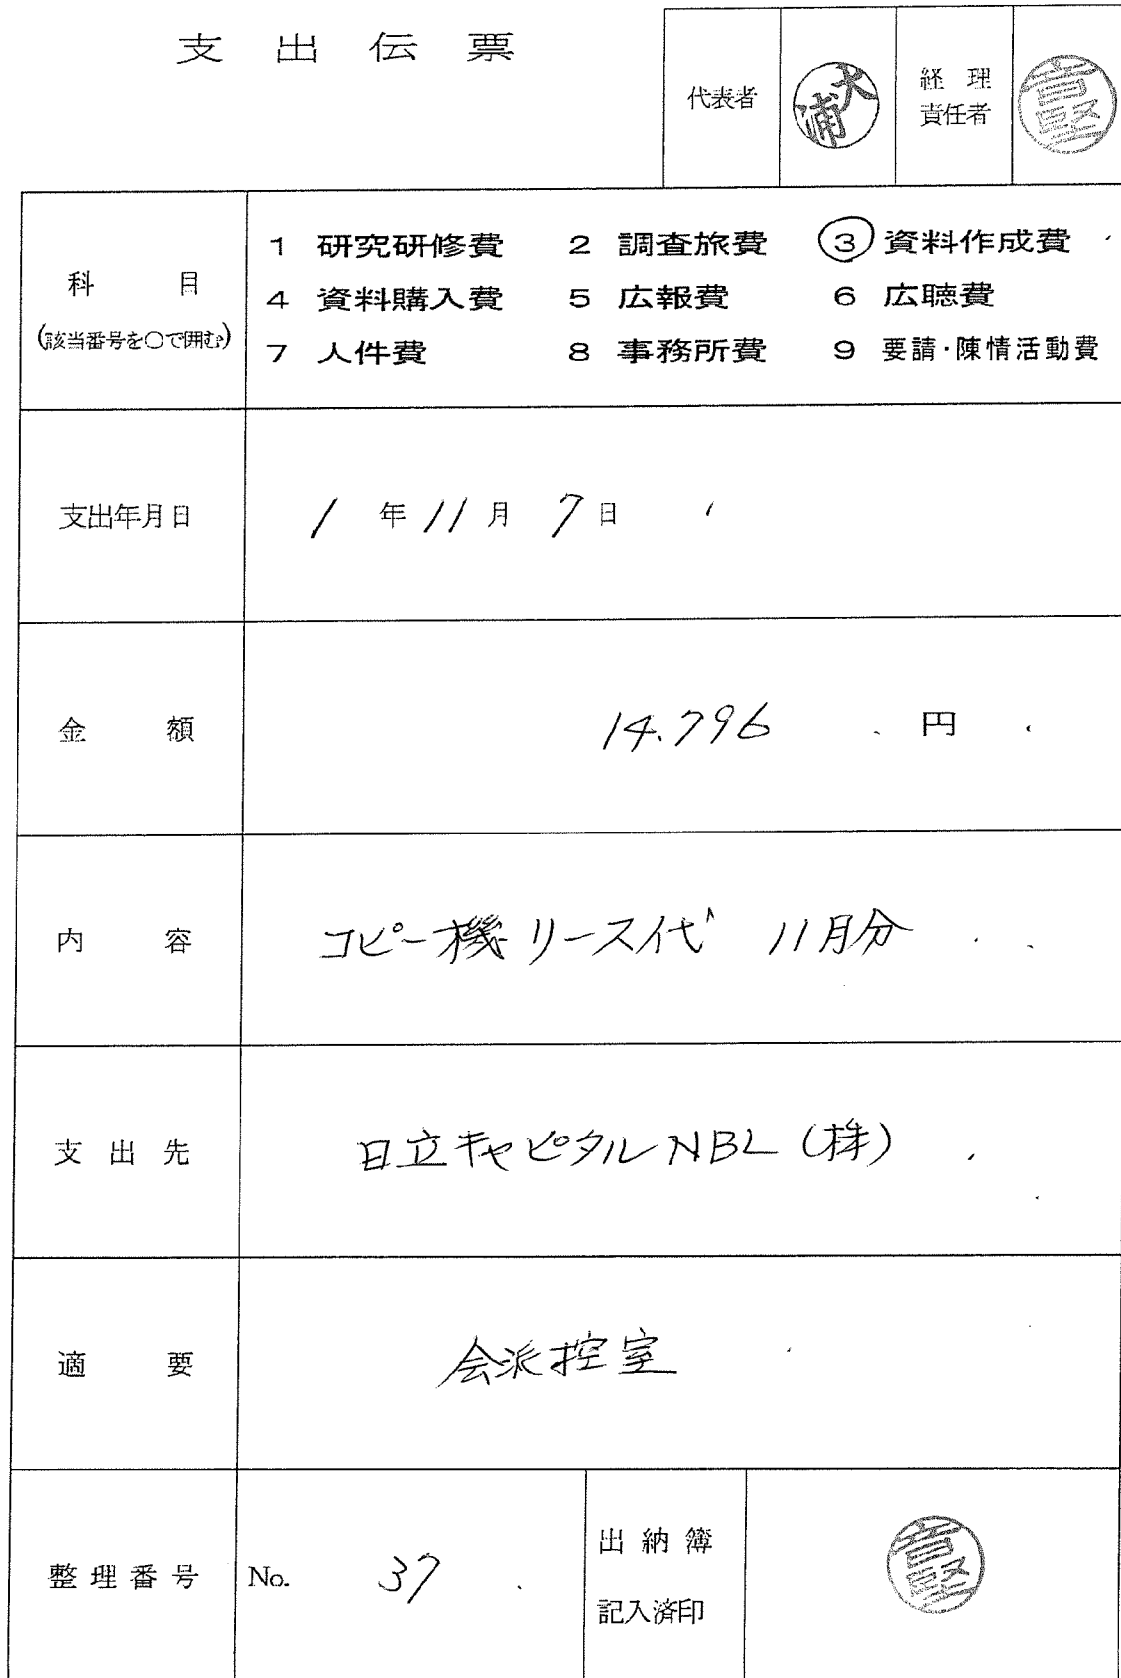 支出伝票
代表者 大浦 経理責任者
科目
(該当番号を○で囲む)
1 研究研修費 2 調査旅費 ③ 資料作成費
4 資料購入費 5 広報費 6 広聴費
7 人件費 8 事務所費 9 要請・陳情活動費
支出年月日 1年11月7日
金額 14.796 円
内容 コピー機リース代 11月分
支出先 日立キャピタルNBL(株)
適要 会派控室
整理番号 No. 37 出納簿
記入済印